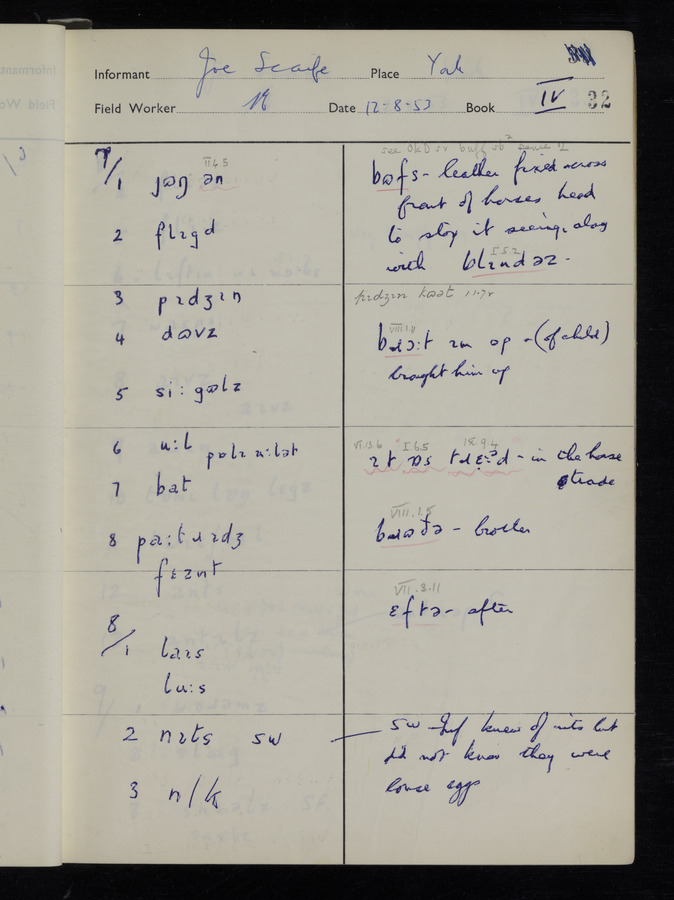 Informant Joe Scarfe Place York
Field Worker N Date 12-8-53 Book IV 32
7/1 jɷŋ ən
II 4.5
2 flɪgd
3 pɪdʒɪn
4 dɷvz
5 si: gɷlz
6 u:l pɷlɪ u:lət
7 bat
8 pa:tɹɪdʒ
fɛznt
8/1 laɪs
lu:s
2 nɪts sw
3 n/k
bɷfs - leather fixed across
front of horses head
to stop it seeing, along
I.5.2
with blɪndəz -
pɪdʒɪn kɷət
VIII.1.11
ɪm ɷp - (of child)
brought him up
VI.13.6 I 6.5 IX 9.4
ɪt ɒs - in the horse
trade
VIII.1.5
bɹɷðə - brother
VII.3.11
ɛftə - after
sw - Inf knew of nits but
did not know they were
louse eggs